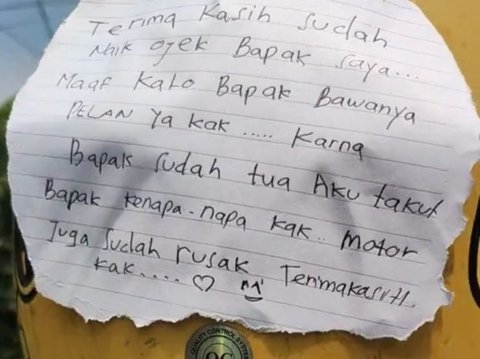 Terima Kasih Sudah
Naik ojek Bapak saya...
Maaf Kalo Bapak Bawanya
PELAN Ya kak ..... Karna
Bapak sudah tua Aku takut
Bapak kenapa-napa kak.. motor
Juga sudah rusak Terimakasih
kak..... ♡
QUALITY CONTROL
QC